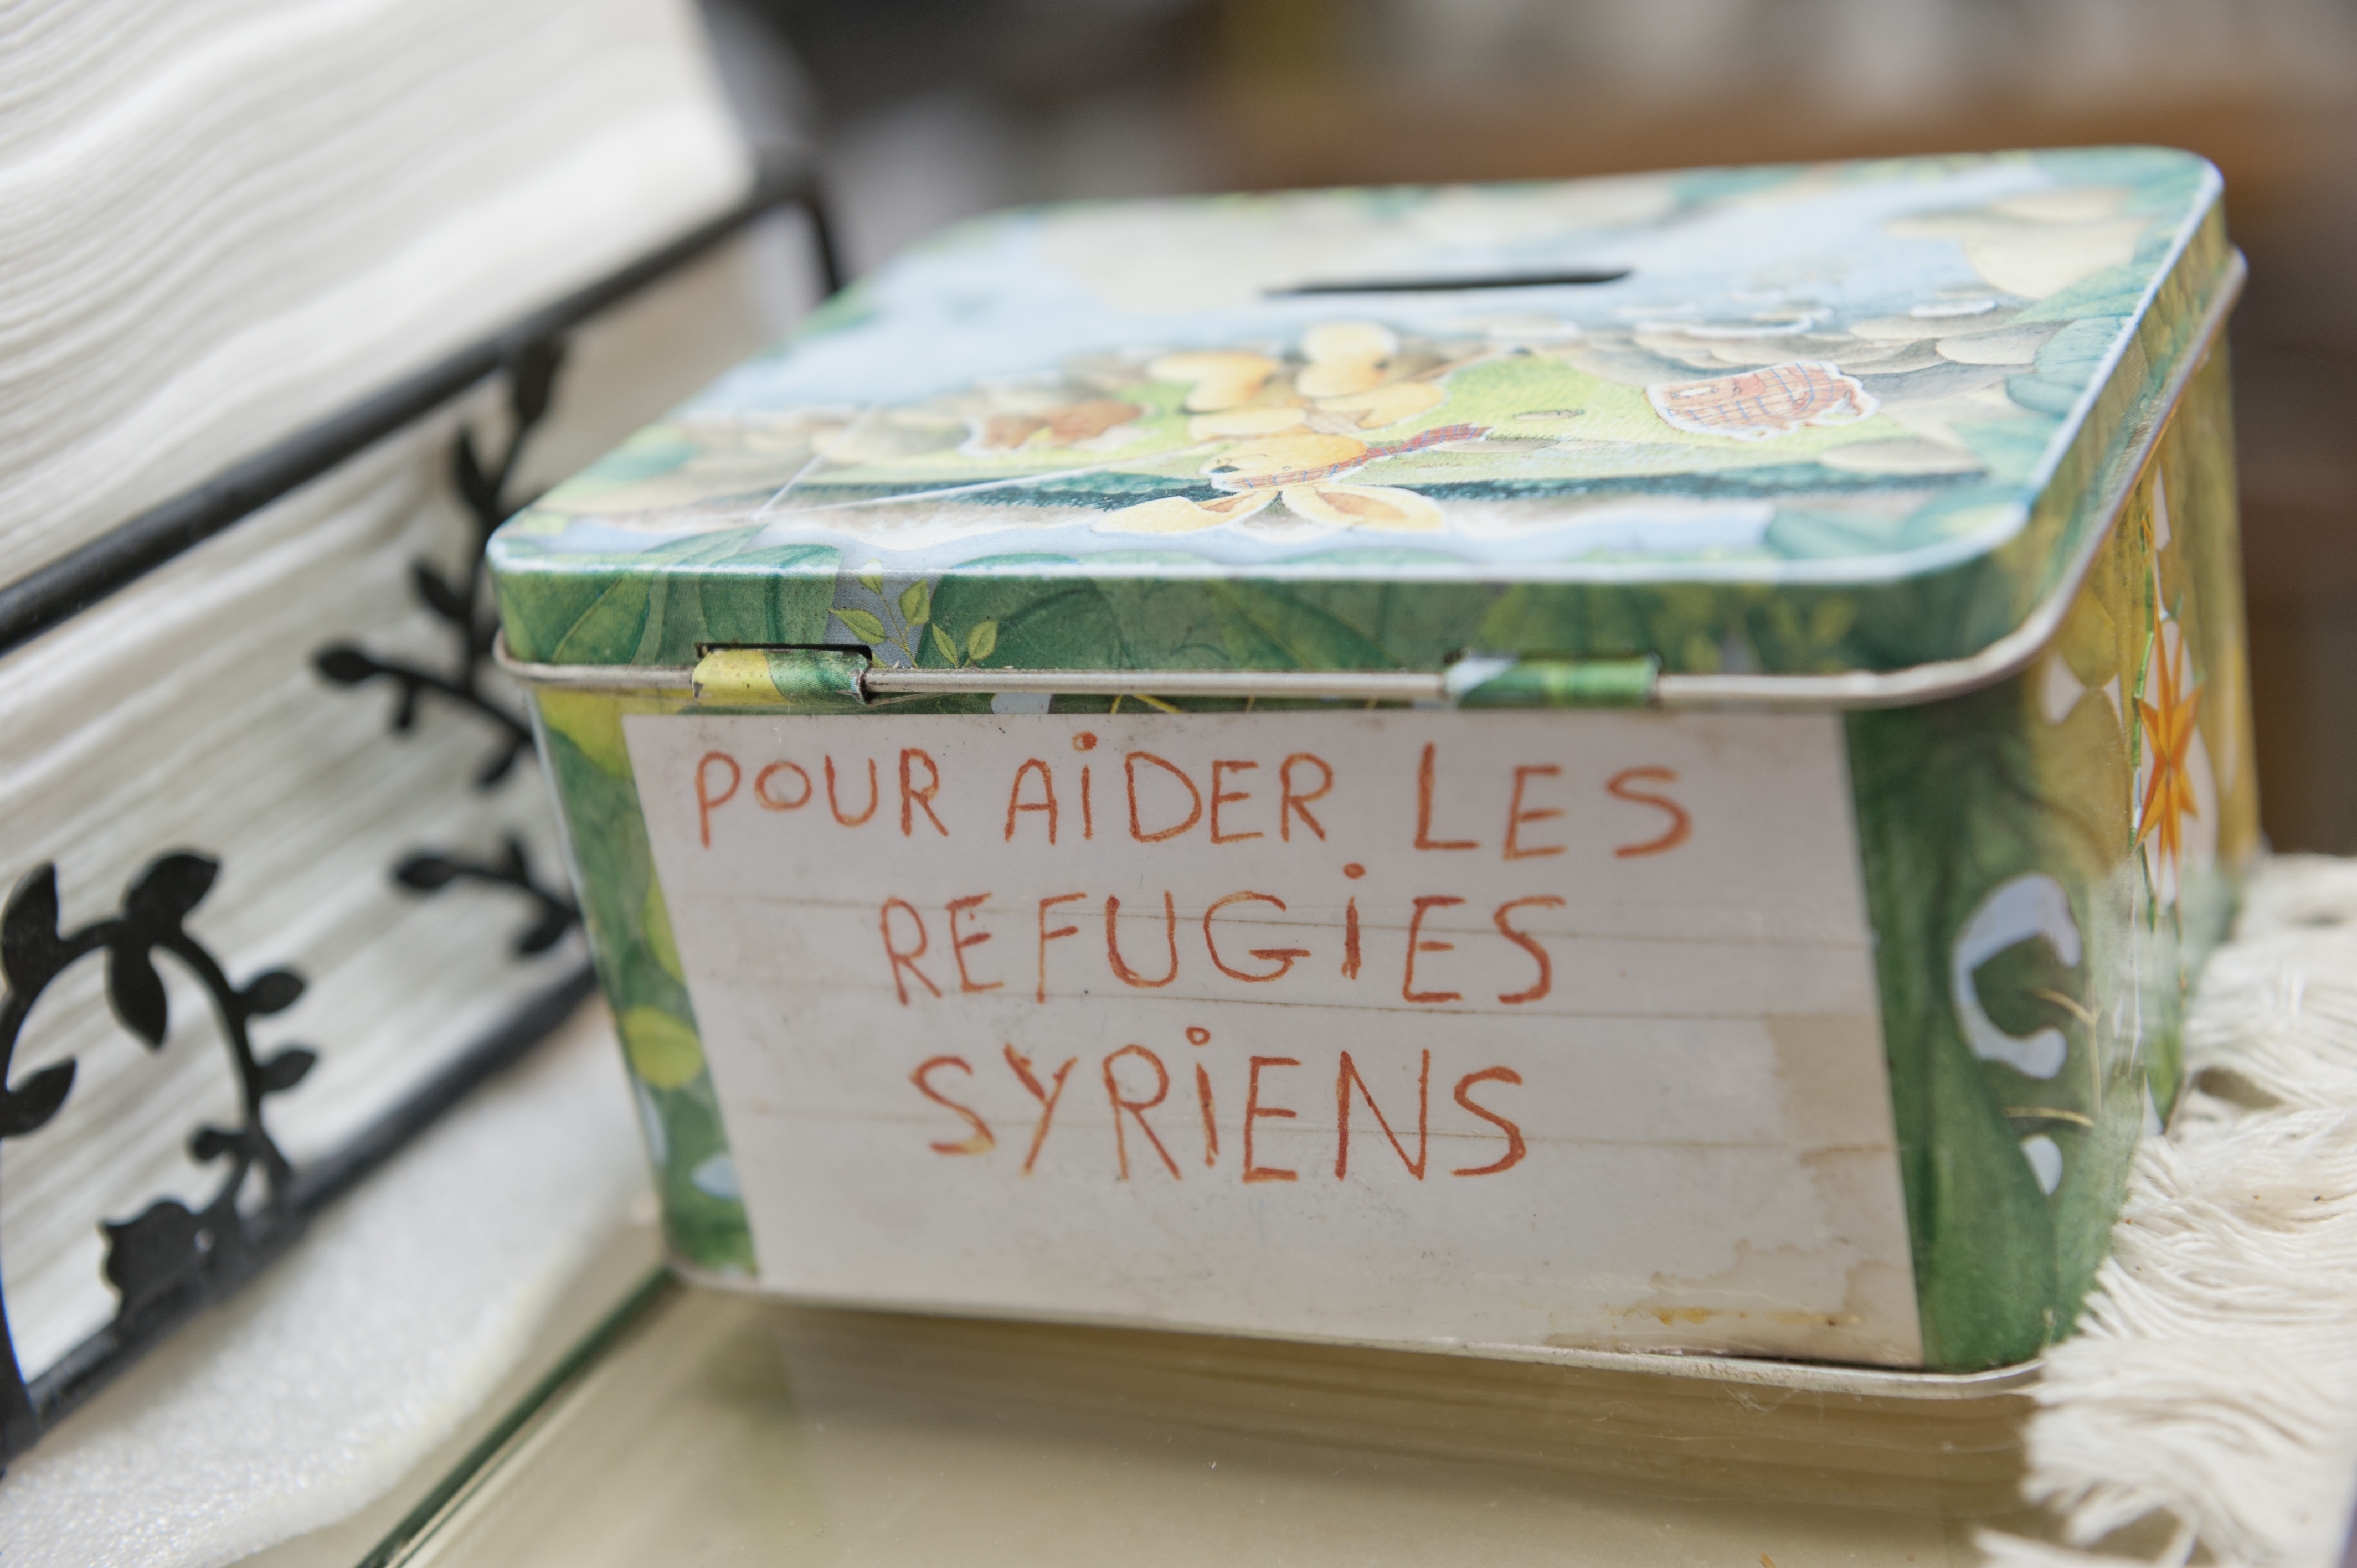 POUR AiDER LES
REFUGiES
SYRiENS